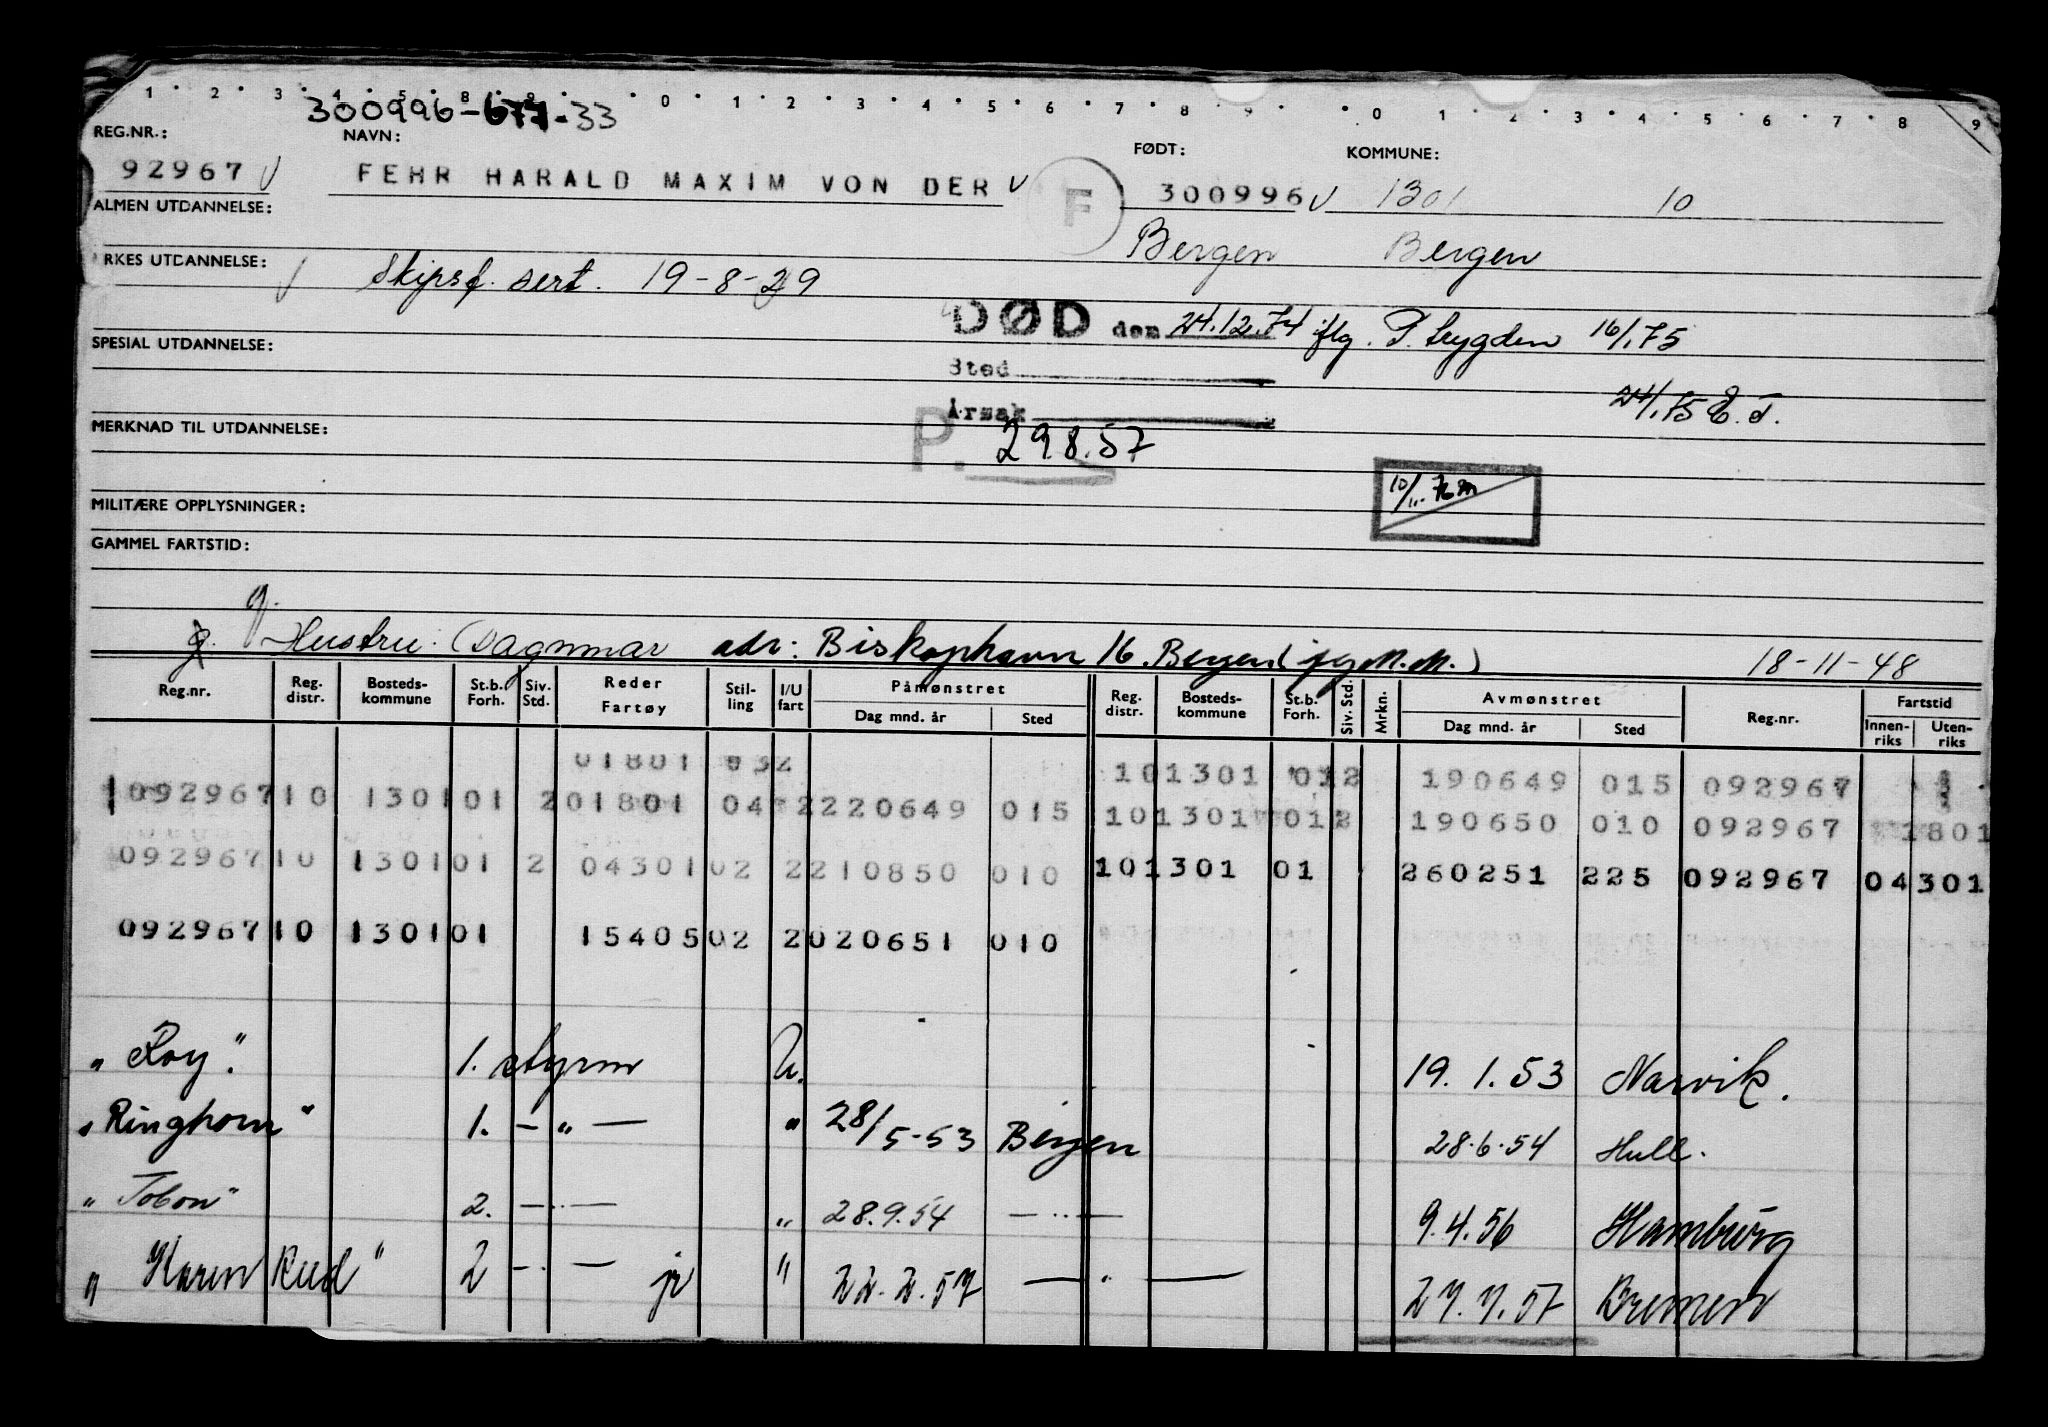 1 2 3 4 5 8 9 0 1 2 3 4 5 6 7 8 9 0 1 2 3 4 5 6 7 8 9
300996-677-33
REG.NR.: NAVN: FØDT: KOMMUNE:
92967 V FEHR HARALD MAXIM VON DER V F 300996 V 1301 10
ALMEN UTDANNELSE: Bergen Bergen
RKES UTDANNELSE: V Skipsf. sert. 19-8-29
DØD den 24.12.74 iflg. P. trygden 16/1.75
SPESIAL UTDANNELSE: Sted
24/1.75 E.T.
Årsak
MERKNAD TIL UTDANNELSE: P. 29.8.57
10/11.76 m
MILITÆRE OPPLYSNINGER:
GAMMEL FARTSTID:
g.
g. Hustru: Dagmar adr: Biskophavn 16. Bergen (jfg M.M.) 18-11-48
Reg.nr. Reg. distr. Bosteds- kommune St.b. Forh. Siv. Std. Reder Fartøy Stil- ling I/U fart Påmønstret Dag mnd. år Sted Reg. distr. Bosteds- kommune St.b. Forh. Siv. Std. Mrkn. Avmønstret Dag mnd. år Sted Reg.nr. Fartstid Innen- riks Uten- riks
01801 032 101301 012 190649 015 092967
1092967 10 1301 01 2 01801 04 2 220649 015 101301 012 190650 010 092967 1801
092967 10 1301 01 2 04301 02 2 210850 010 101301 01 260251 225 092967 04301
092967 10 1301 01 15405 02 2 020651 010
"Roy". 1. styrm U. 19.1.53 Narvik.
"Ringhorn" 1. — " — " 28/5-53 Bergen 28.6.54 Hull.
"Tobon" 2. — " — " 28.9.54 — " — 9.4.56 Hamburg
"Karen Rud" 2 — " — jr " 22.2.57 — " — 27.7.57 Bremen